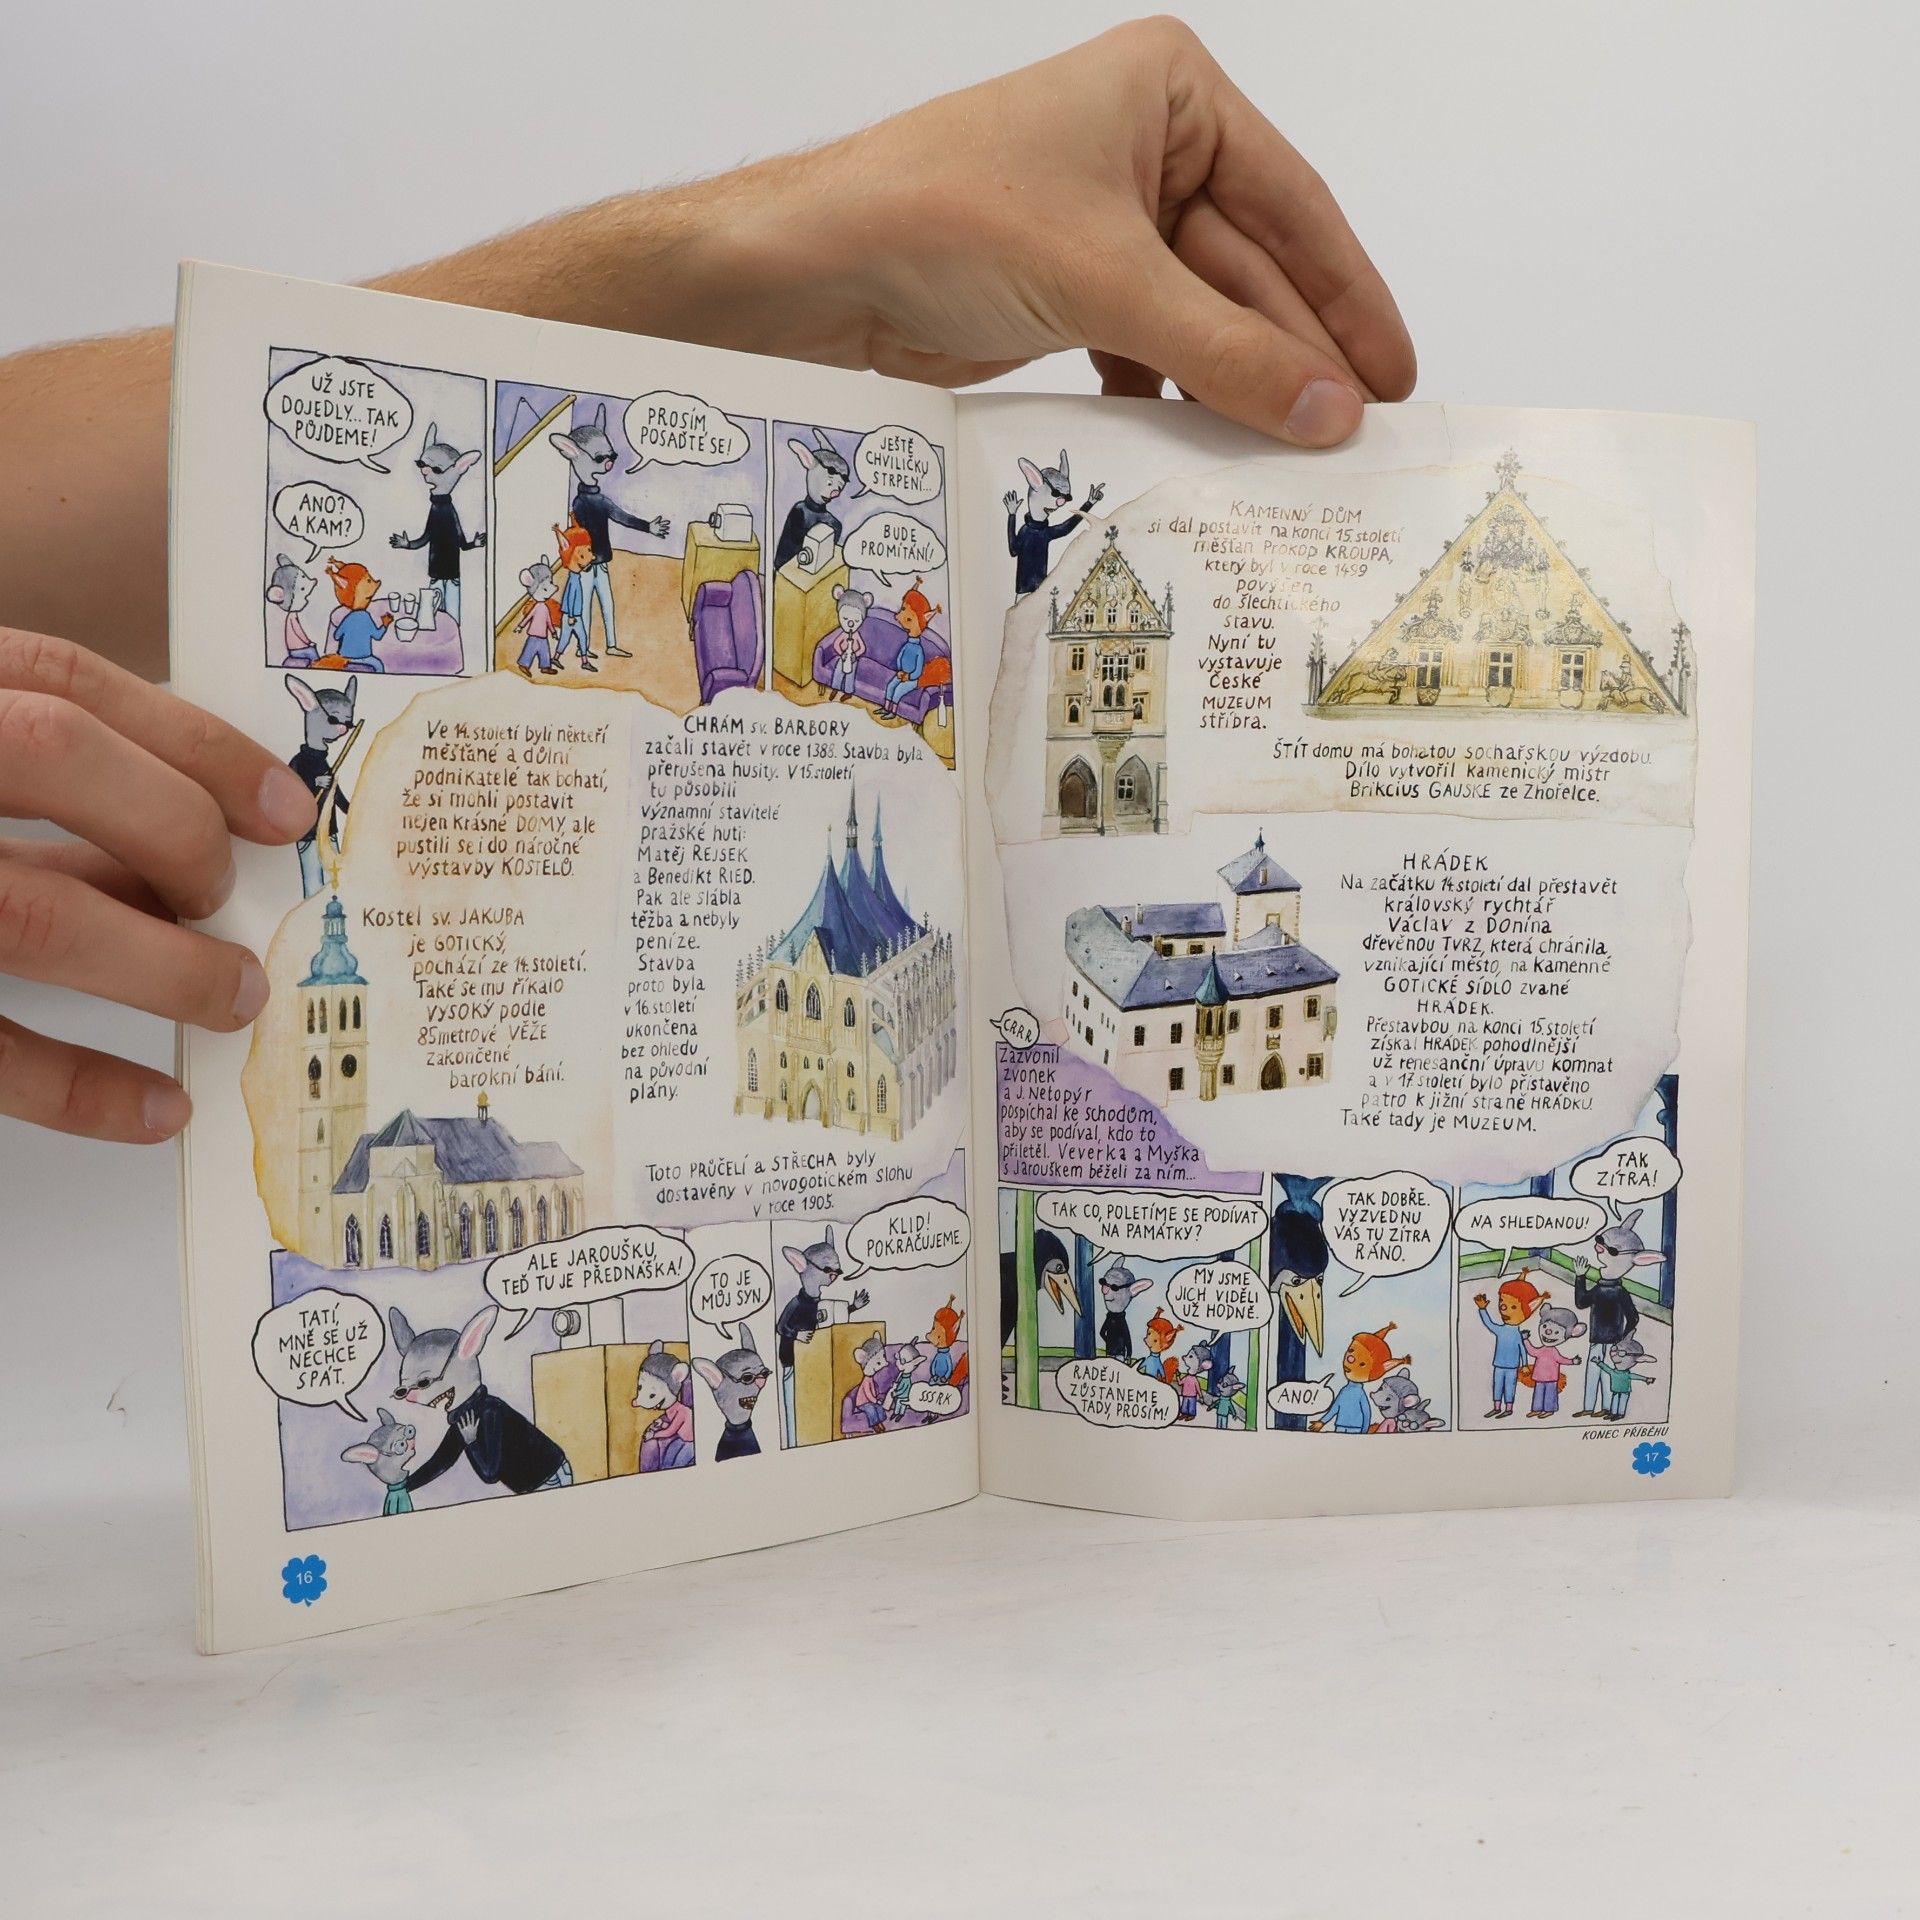 UŽ JSTE
DOJEDLY... TAK
PŮJDEME!
ANO?
A KAM?
PROSÍM,
POSAĎTE SE!
JEŠTĚ
CHVILIČKU
STRPENÍ...
BUDE
PROMÍTÁNÍ!
Ve 14. století byli někteří
měšťané a důlní
podnikatelé tak bohatí,
že si mohli postavit
nejen krásné DOMY, ale
pustili se i do náročné
výstavby KOSTELŮ.
Kostel sv. JAKUBA
je GOTICKÝ,
pochází ze 14. století.
Také se mu říkalo
VYSOKÝ podle
85metrové VĚŽE
zakončené
barokní bání.
CHRÁM sv. BARBORY
začali stavět v roce 1388. Stavba byla
přerušena husity. V 15. století
tu působili
významní stavitelé
pražské huti:
Matěj REJSEK
a Benedikt RIED.
Pak ale slábla
těžba a nebyly
peníze.
Stavba
proto byla
v 16. století
ukončena
bez ohledu
na původní
plány.
Toto PRŮČELÍ a STŘECHA byly
dostavěny v novogotickém slohu
v roce 1905.
TATÍ,
MNĚ SE UŽ
NECHCE
SPÁT.
ALE JAROUŠKU,
TEĎ TU JE PŘEDNÁŠKA!
TO JE
MŮJ SYN.
KLID!
POKRAČUJEME.
SSSRK
16
KAMENNÝ DŮM
si dal postavit na konci 15. století
měšťan Prokop KROUPA,
který byl v roce 1499
povýšen
do šlechtického
stavu.
Nyní tu
vystavuje
České
MUZEUM
stříbra.
ŠTÍT domu má bohatou sochařskou výzdobu.
Dílo vytvořil kamenický mistr
Brikcius GAUSKE ze Zhořelce.
HRÁDEK
Na začátku 14. století dal přestavět
královský rychtář
Václav z Donína
dřevěnou TVRZ, která chránila
vznikající město, na kamenné
GOTICKÉ SÍDLO zvané
HRÁDEK.
Přestavbou na konci 15. století
získal HRÁDEK pohodlnější
už renesanční úpravu komnat
a v 17. století bylo přistavěno
patro k jižní straně HRÁDKU.
Také tady je MUZEUM.
CRRR
Zazvonil
zvonek
a J. Netopýr
pospíchal ke schodům,
aby se podíval, kdo to
přiletěl. Veverka a Myška
s Jarouškem běželi za ním...
TAK CO, POLETÍME SE PODÍVAT
NA PAMÁTKY?
MY JSME
JICH VIDĚLI
UŽ HODNĚ.
RADĚJI
ZŮSTANEME
TADY, PROSÍM!
TAK DOBŘE.
VYZVEDNU
VÁS TU ZÍTRA
RÁNO.
ANO!
NA SHLEDANOU!
TAK
ZÍTRA!
KONEC PŘÍBĚHU
17